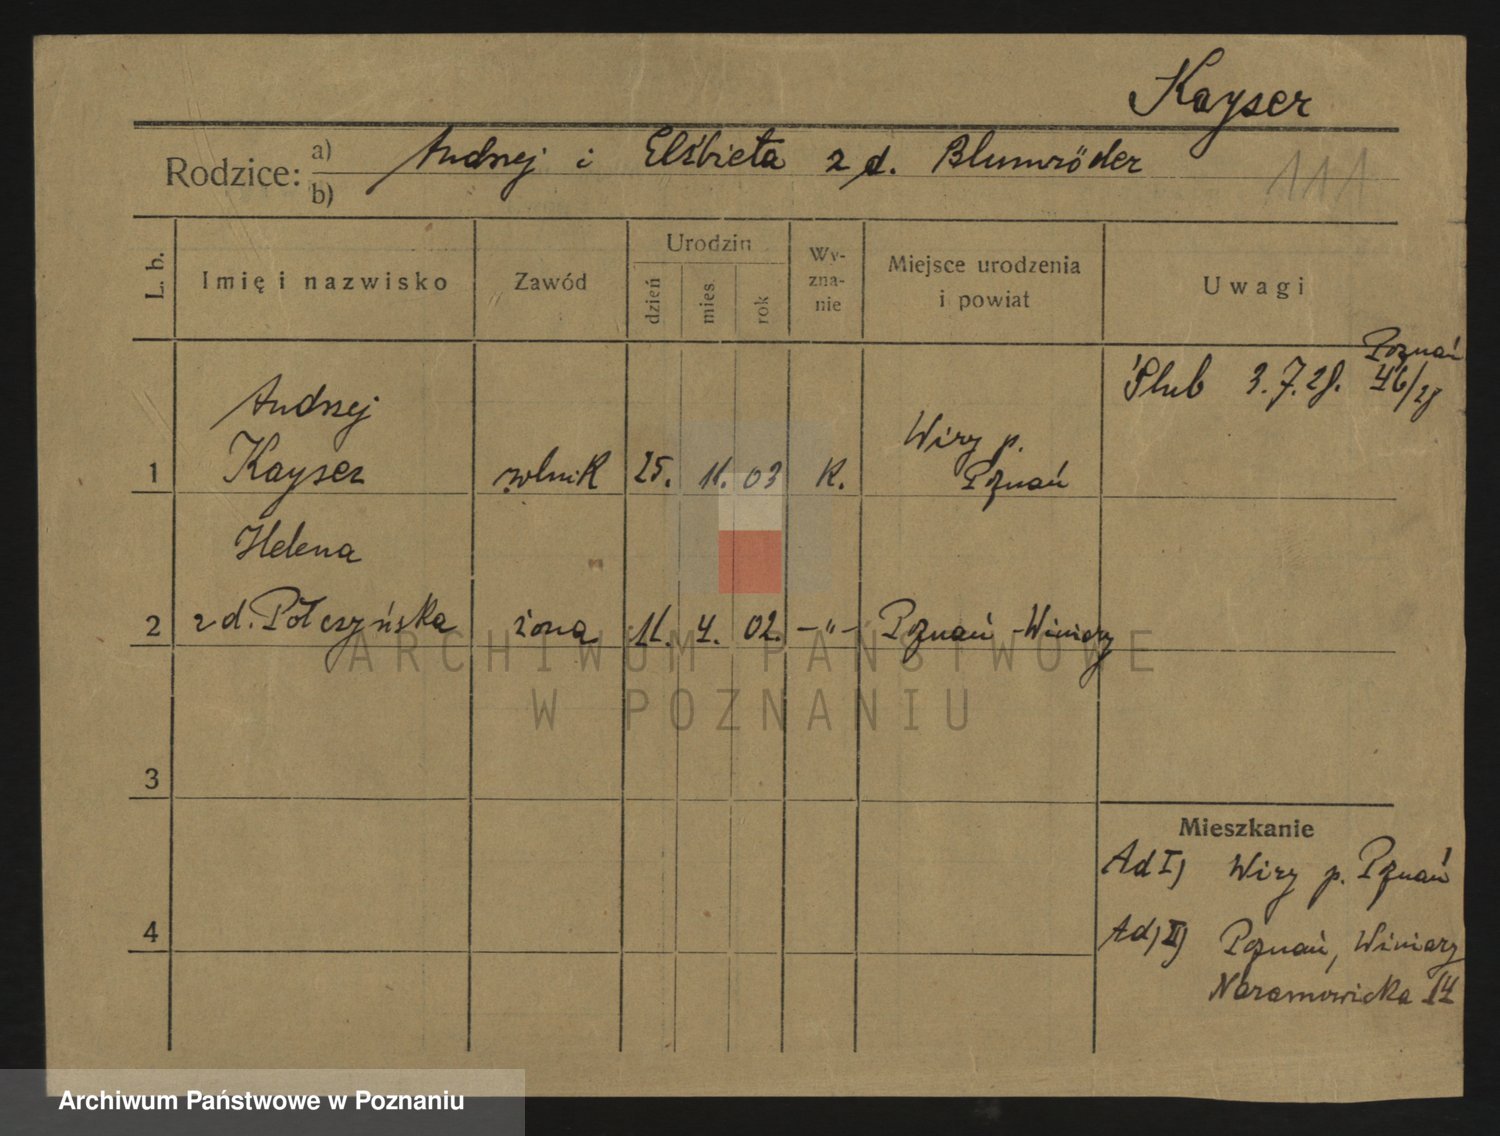 Kayser
Rodzice: a) Andrzej i Elżbieta z d. Blumröder
b)
111
L. b.
Imię i nazwisko
Zawód
Urodzin
dzień
mies.
rok
Wy-
zna-
nie
Miejsce urodzenia
i powiat
Uwagi
Poznań
Ślub 3.7.28. 46/28
Andrzej
Wiry p.
1 Kayser rolnik 25. 11. 03 R. Poznań
Helena
2 z d. Połczyńska żona 11. 4. 02. -"- Poznań-Winiary
ARCHIWUM PAŃSTWOWE
W POZNANIU
3
Mieszkanie
Ad I) Wiry p. Poznań
4
Ad) II) Poznań, Winiary
Naramowicka 14
Archiwum Państwowe w Poznaniu